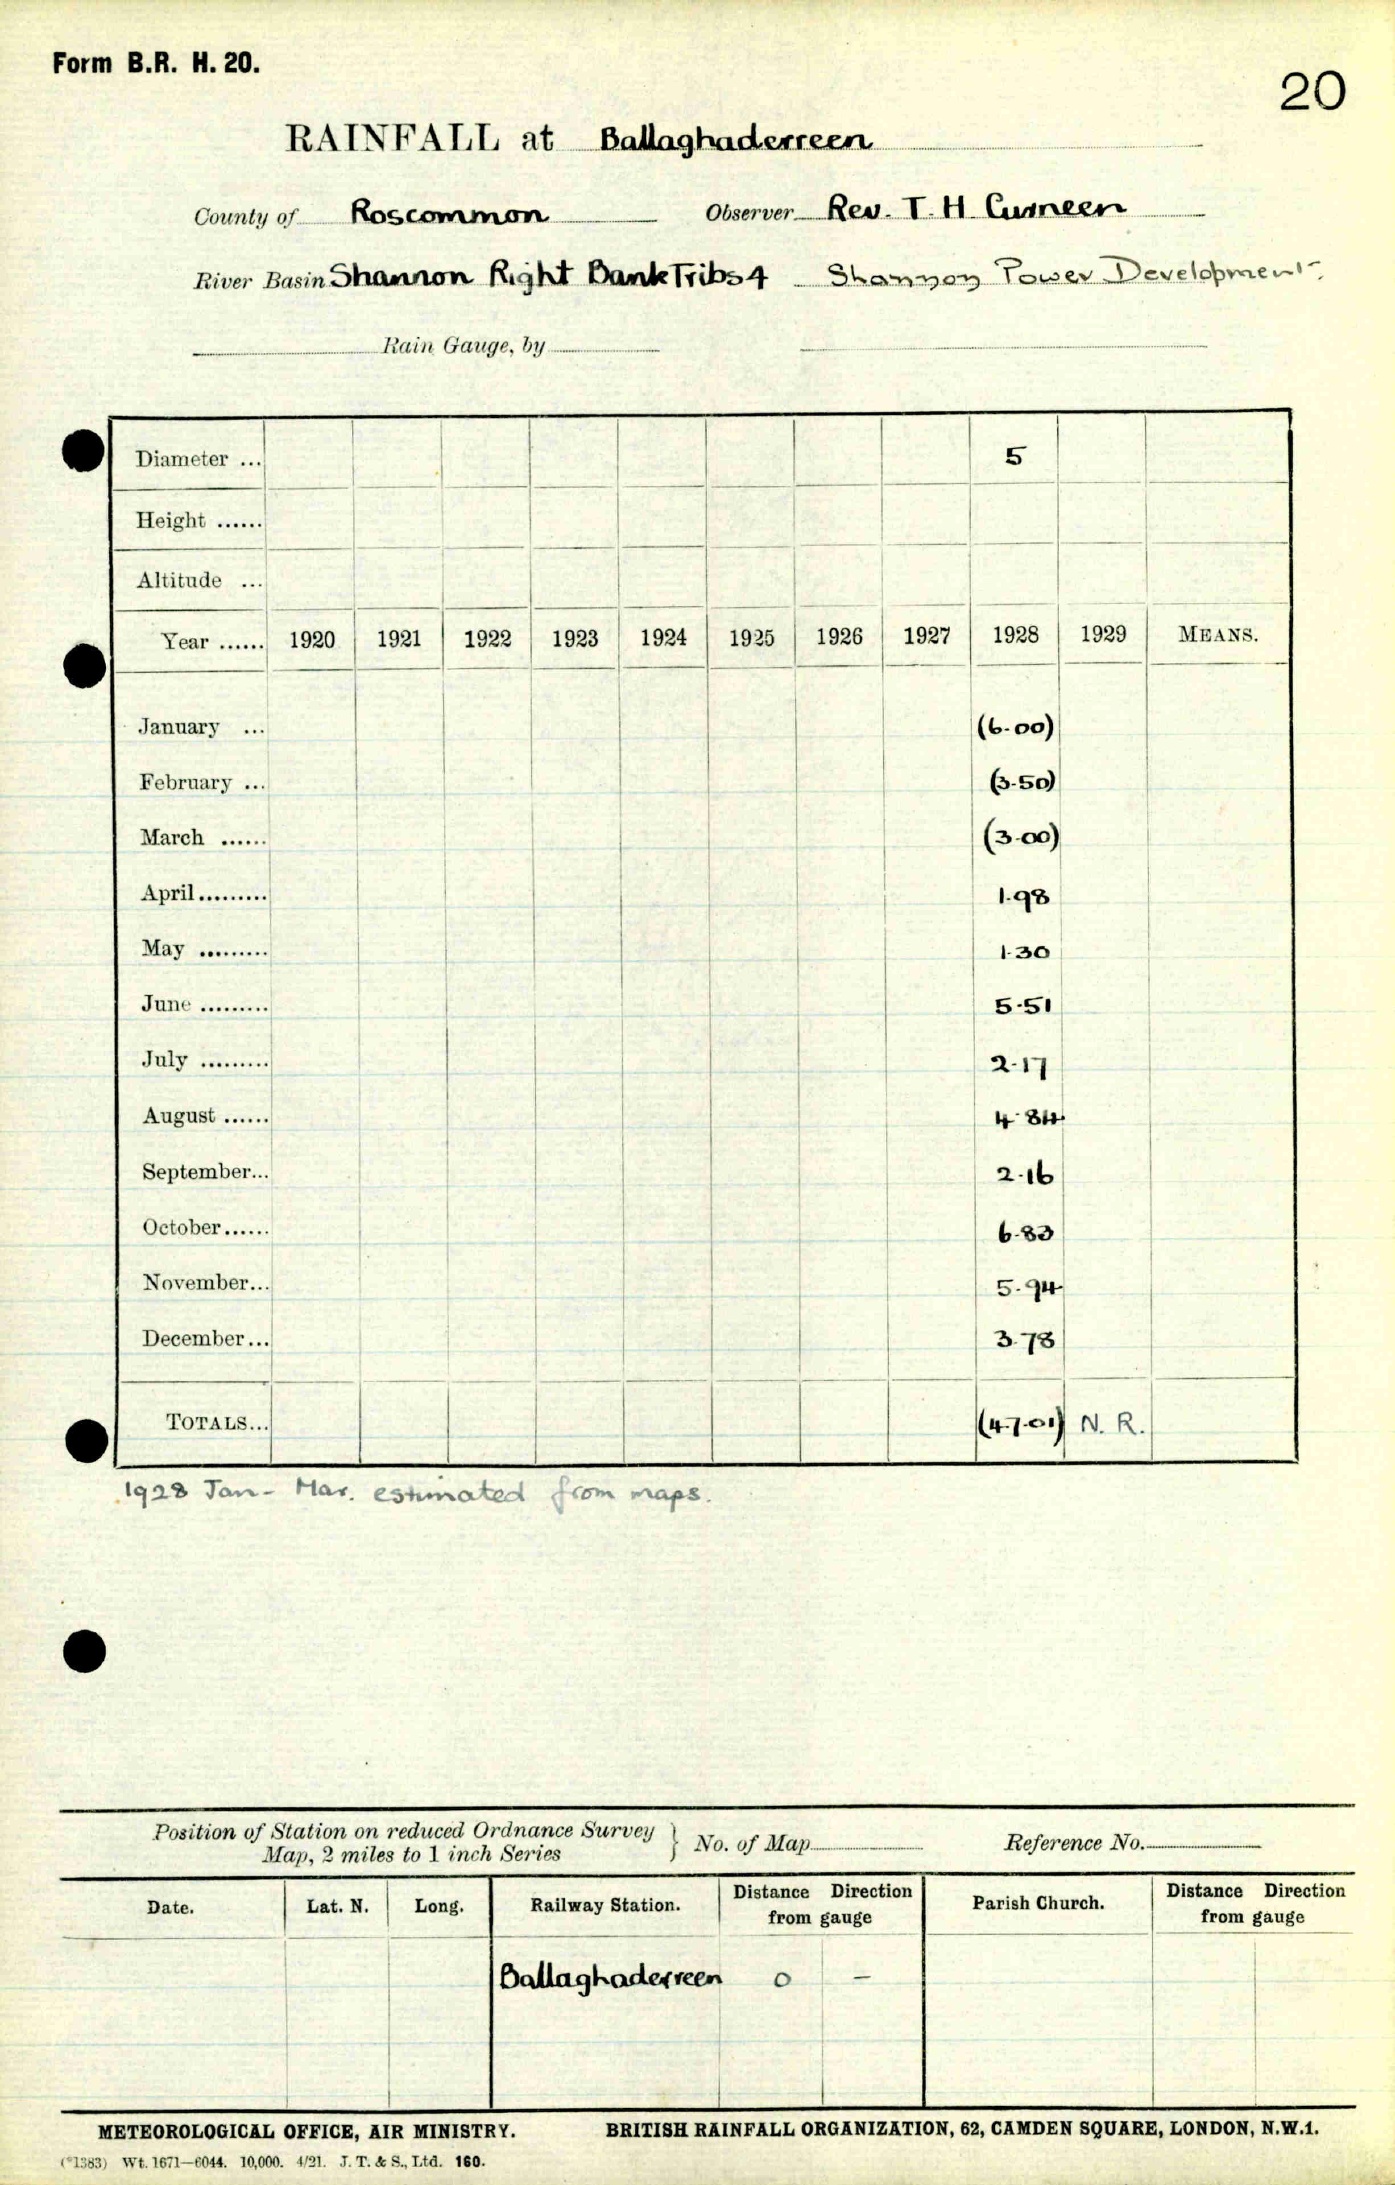 Form B.R. H. 20.
20
RAINFALL at Ballaghaderreen
County of Roscommon Observer Rev. T. H Curneen
River Basin Shannon Right Bank Tribs 4 Shannon Power Development.
Rain Gauge, by
Diameter ... 5
Height ......
Altitude ...
Year ...... 1920 1921 1922 1923 1924 1925 1926 1927 1928 1929 MEANS.
January ... (6.00)
February ... (3.50)
March ...... (3.00)
April ......... 1.98
May ......... 1.30
June ......... 5.51
July ......... 2.17
August ...... 4.84
September... 2.16
October...... 6.83
November... 5.94
December... 3.78
TOTALS... (47.01) N. R.
1928 Jan - Mar. estimated from maps.
Position of Station on reduced Ordnance Survey
Map, 2 miles to 1 inch Series } No. of Map Reference No.
Date. Lat. N. Long. Railway Station. Distance Direction from gauge Parish Church. Distance Direction from gauge
Ballaghaderreen 0 –
METEOROLOGICAL OFFICE, AIR MINISTRY. BRITISH RAINFALL ORGANIZATION, 62, CAMDEN SQUARE, LONDON, N.W.1.
(*1383) Wt. 1671—6044. 10,000. 4/21. J. T. & S., Ltd. 160.